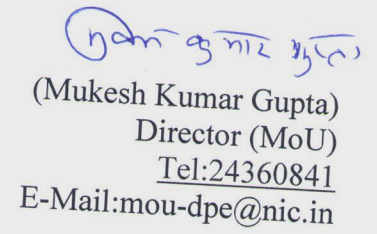 मुकेश कुमार गुप्ता
(Mukesh Kumar Gupta)
Director (MoU)
Tel:24360841
E-Mail:mou-dpe@nic.in